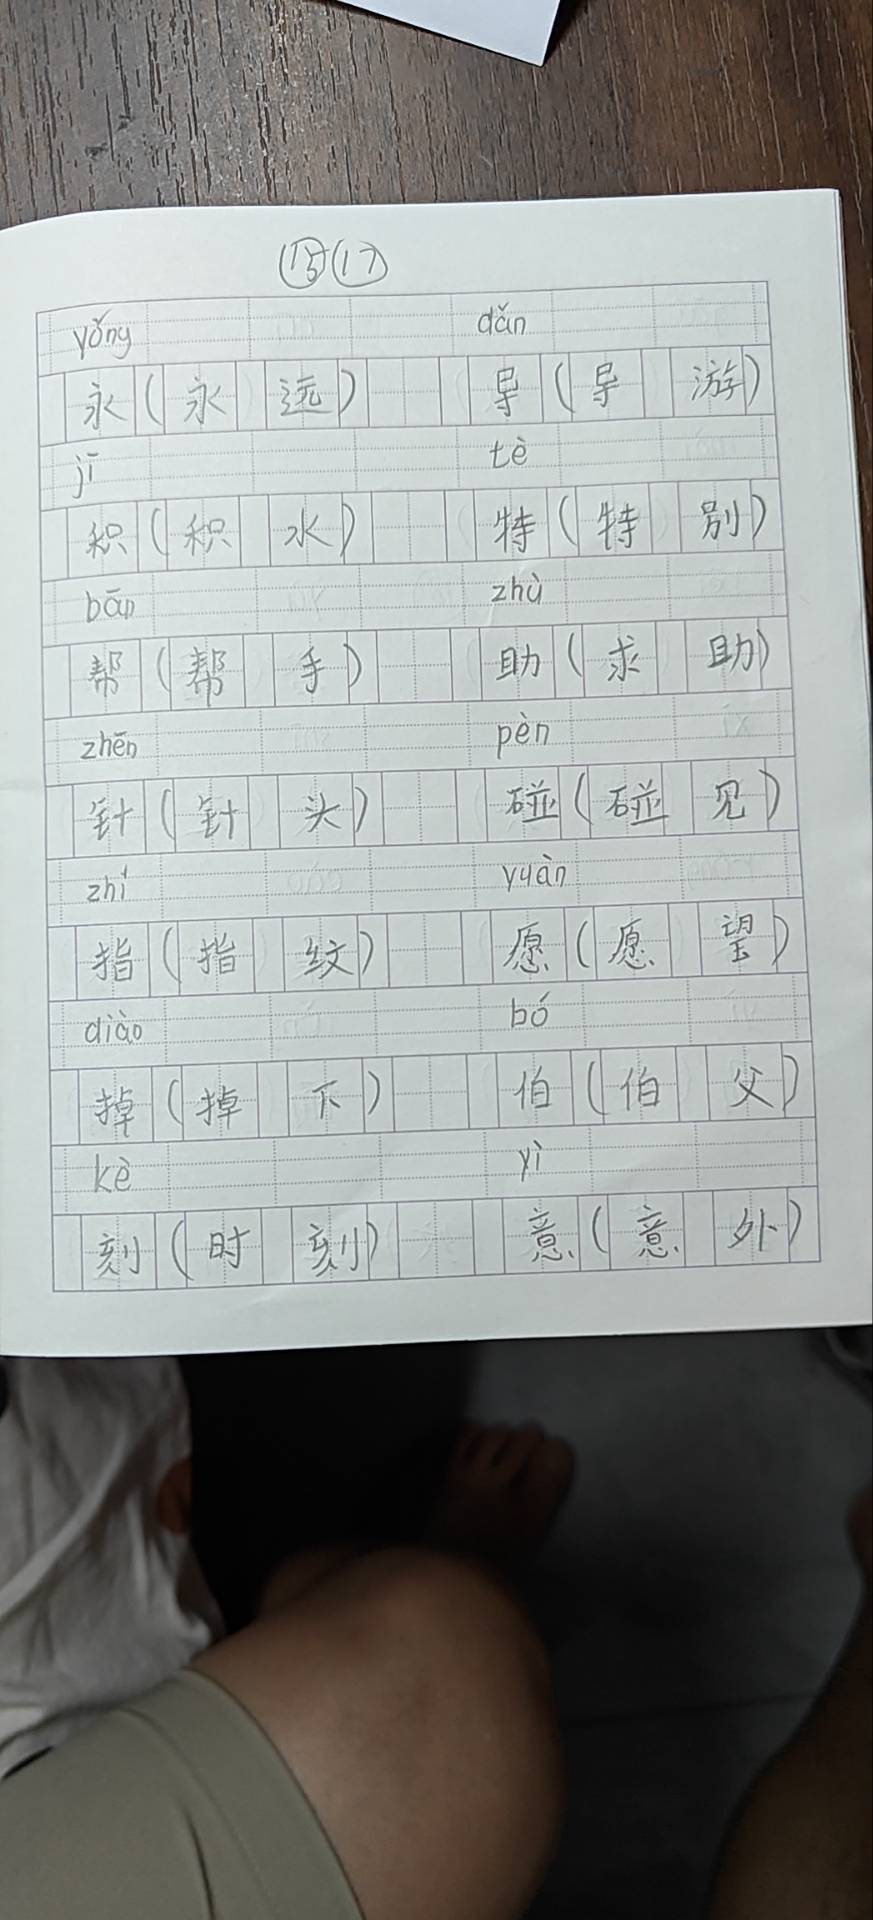 ⑮⑰
yǒng dǎn
永(永远) 导(导游)
jī tè
积(积水) 特(特别)
bān zhù
帮(帮手) 助(求助)
zhēn pèn
针(针头) 碰(碰见)
zhí yuàn
指(指纹) 愿(愿望)
diào bó
掉(掉下) 伯(伯父)
kè yì
刻(时刻) 意(意外)